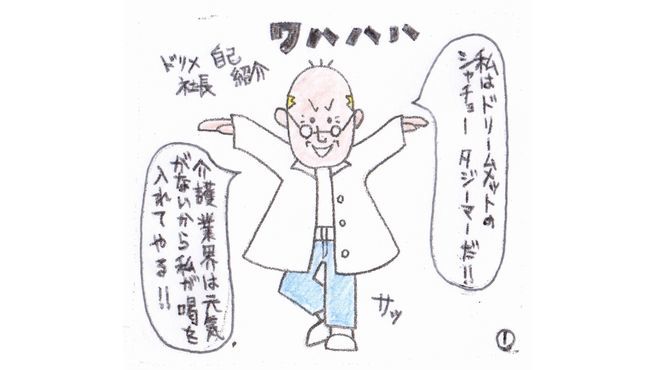 ワハハハ
ドリメ
社長
自己
紹介
私はドリームメットの
シャチョー タジーマーだ!!
介護業界は元気
がないから私が喝を
入れてやる!!
サッ
①